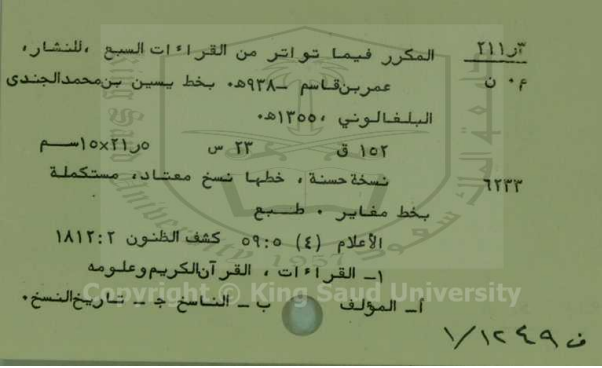 ٢١١ر٣ المكرر فيما تواتر من القراءات السبع ،للنشار،
ع٠ ن عمربن قاسم -٩٣٨ه٠ بخط يسين بن محمدالجندى
البلغالوني ،١٣٥٥ه٠
١٥٢ ق ٢٣ س ٥ر٢١×١٥سم
٦٢٣٣ نسخة حسنة ، خطها نسخ معتاد، مستكملة
بخط مغاير ٠ طبع
الأعلام (٤) ٥٩:٥ كشف الظنون ١٨١٢:٢
١- القراءات ، القرآن الكريم وعلومه
أ- المؤلف ب - الناسخ ج - تاريخ النسخ٠
Copyright © King Saud University
ف ١/١٢٤٩